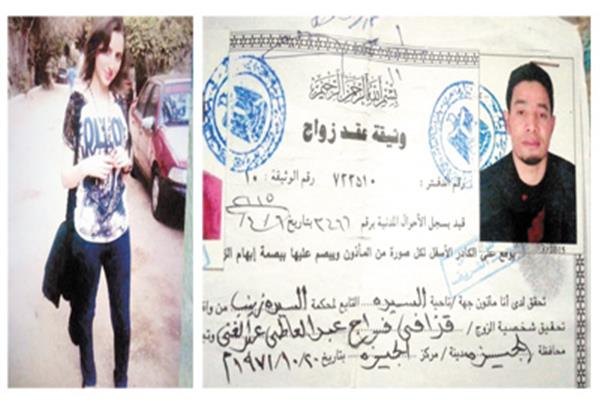 بسم الله الرحمن الرحيم
وثيقة عقد زواج
رقم الدفتر : ٧٢٢٥١٠ رقم الوثيقة : ١٠
قيد بسجل الأحوال المدنية برقم ٣٤٦٦ بتاريخ
يوقع على الكادر الأسفل لكل صورة من المأذون ويبصم عليها ببصمة إبهام
تحقق لدى أنا مأذون جهة / ناحية السيده التابع لمحكمة السيده زينب
تحقيق شخصية الزوج / قذافي فراج عبد العاطي عبد الغني
محافظة / الجيزه مدينة / مركز الجيزه بتاريخ ١٩٧١/١٠/٢٠م